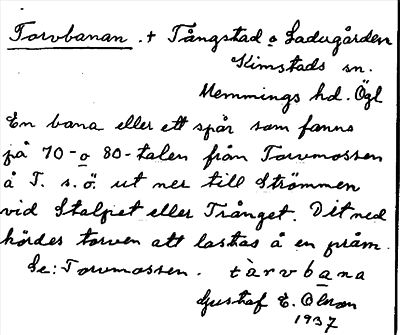 Torvbanan . + Tångstad o Ladugården
Kimstads sn.
Memmings hd. Ögl
En bana eller ett spår som fanns
på 70-o 80-talen från Torvmossen
å T. s.ö. ut ner till Strömmen
vid Stalpet eller Trånget. Dit ned
kördes torven att lastas å en pråm.
Se: Torvmossen. tàrvbana
Gustaf E. Olson
1937